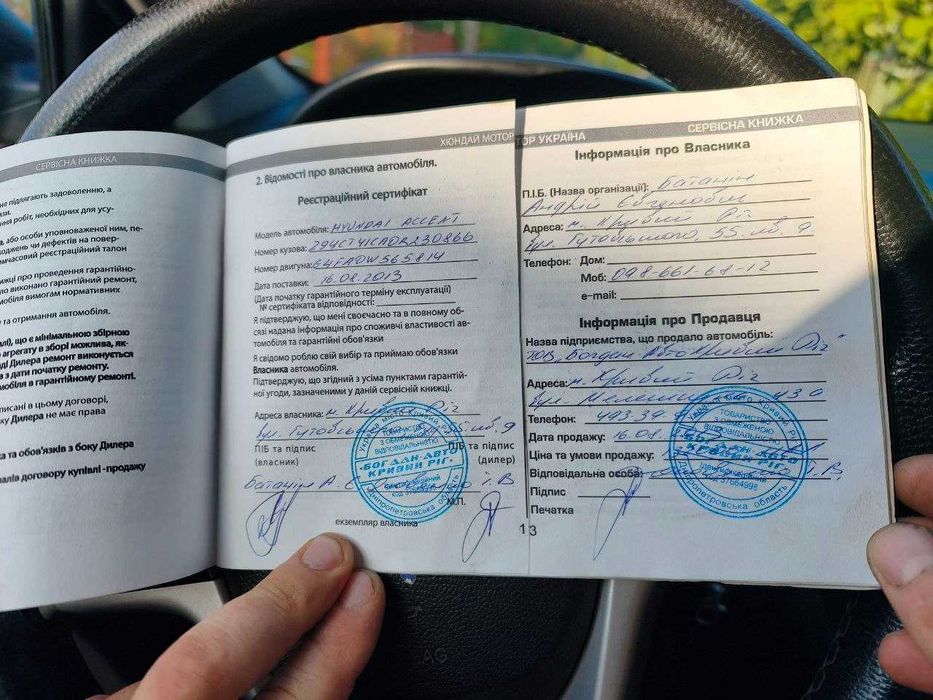 СЕРВІСНА КНИЖКА
не підлягають задоволенню, а
ння робіт, необхідних для усу-
або особи уповноваженої ним, пе-
оджень чи дефектів на повер-
имчасовий реєстраційний талон
жці про проведення гарантійно-
ло виконано гарантійний ремонт,
мобіля вимогам нормативних
у та отримання автомобіля.
лі), що є мінімальною збірною
агрегату в зборі можлива, як-
ді Дилера ремонт виконується
в з дати початку ремонту.
мобіля в гарантійному ремонті.
писані в цьому договорі,
ку Дилера не має права
ка та обов'язків з боку Дилера
валів договору купівлі -продажу
ХЮНДАЙ МОТОР УКРАЇНА
2. Відомості про власника автомобіля.
Реєстраційний сертифікат
Модель автомобіля: HYUNDAI ACCENT
Номер кузова: Z94CT41CADR230866
Номер двигуна: G4FADW565814
Дата поставки: 16.08.2013
(Дата початку гарантійного терміну експлуатації)
№ сертифіката відповідності:
Я підтверджую, що мені своєчасно та в повному об-
сязі надана інформація про споживчі властивості ав-
томобіля та гарантійні обов'язки
Я свідомо роблю свій вибір та приймаю обов'язки
Власника автомобіля.
Підтверджую, що згідний з усіма пунктами гарантій-
ної угоди, зазначеними у даній сервісній книжці.
Адреса власника: м. Кривий Ріг
вул. 55 кв. 9
ПІБ та підпис
(власник)
ПІБ та підпис
(дилер)
М.П.
екземпляр власника
БОГДАН-АВТО
КРИВИЙ РІГ
13
СЕРВІСНА КНИЖКА
Інформація про Власника
П.І.Б. (Назва організації):
Андрій Євгенович
Адреса: м. Кривий Ріг
вул. 55 кв. 9
Телефон: Дом:
Моб: 098-661-68-12
e-mail:
Інформація про Продавця
Назва підприємства, що продало автомобіль:
ТОВ "Богдан Авто Кривий Ріг"
Адреса: м. Кривий Ріг
вул.
Телефон: 493-39-
Дата продажу: 16.08.
Ціна та умови продажу:
Відповідальна особа
Підпис
Печатка
УКРАЇНА місто Кривий Ріг
ТОВАРИСТВО
З ОБМЕЖЕНОЮ
ВІДПОВІДАЛЬНІСТЮ
БОГДАН-АВТО
КРИВИЙ РІГ
Ідентифікаційний
код 37664996
Дніпропетровська область